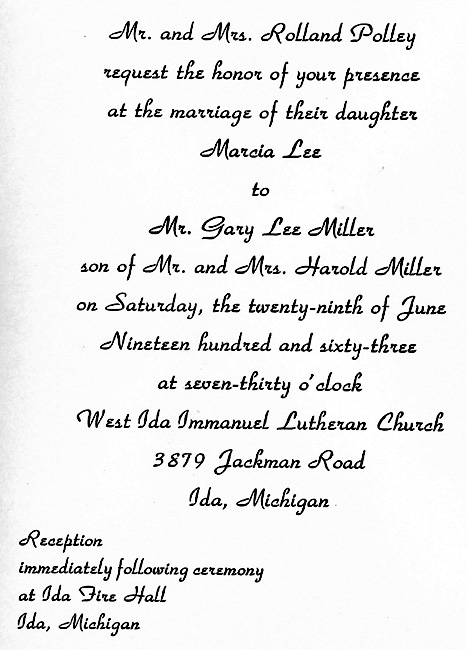 Mr. and Mrs. Rolland Polley
request the honor of your presence
at the marriage of their daughter
Marcia Lee
to
Mr. Gary Lee Miller
son of Mr. and Mrs. Harold Miller
on Saturday, the twenty-ninth of June
Nineteen hundred and sixty-three
at seven-thirty o'clock
West Ida Immanuel Lutheran Church
3879 Jackman Road
Ida, Michigan
Reception
immediately following ceremony
at Ida Fire Hall
Ida, Michigan